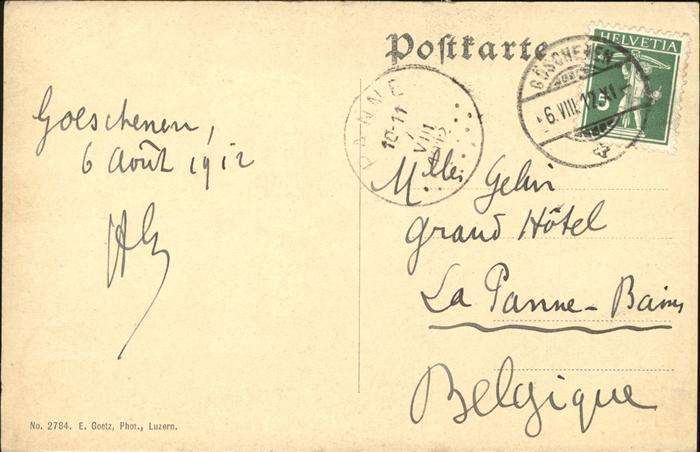 Postkarte
HELVETIA
5
GÖSCHENEN
6.VIII.12.XI
PANNE
10-11
VIII
Goeschenen,
6 Août 1912
Mlles Gelin
Grand Hôtel
La Panne-Bains
Belgique
No. 2784. E. Goetz, Phot., Luzern.